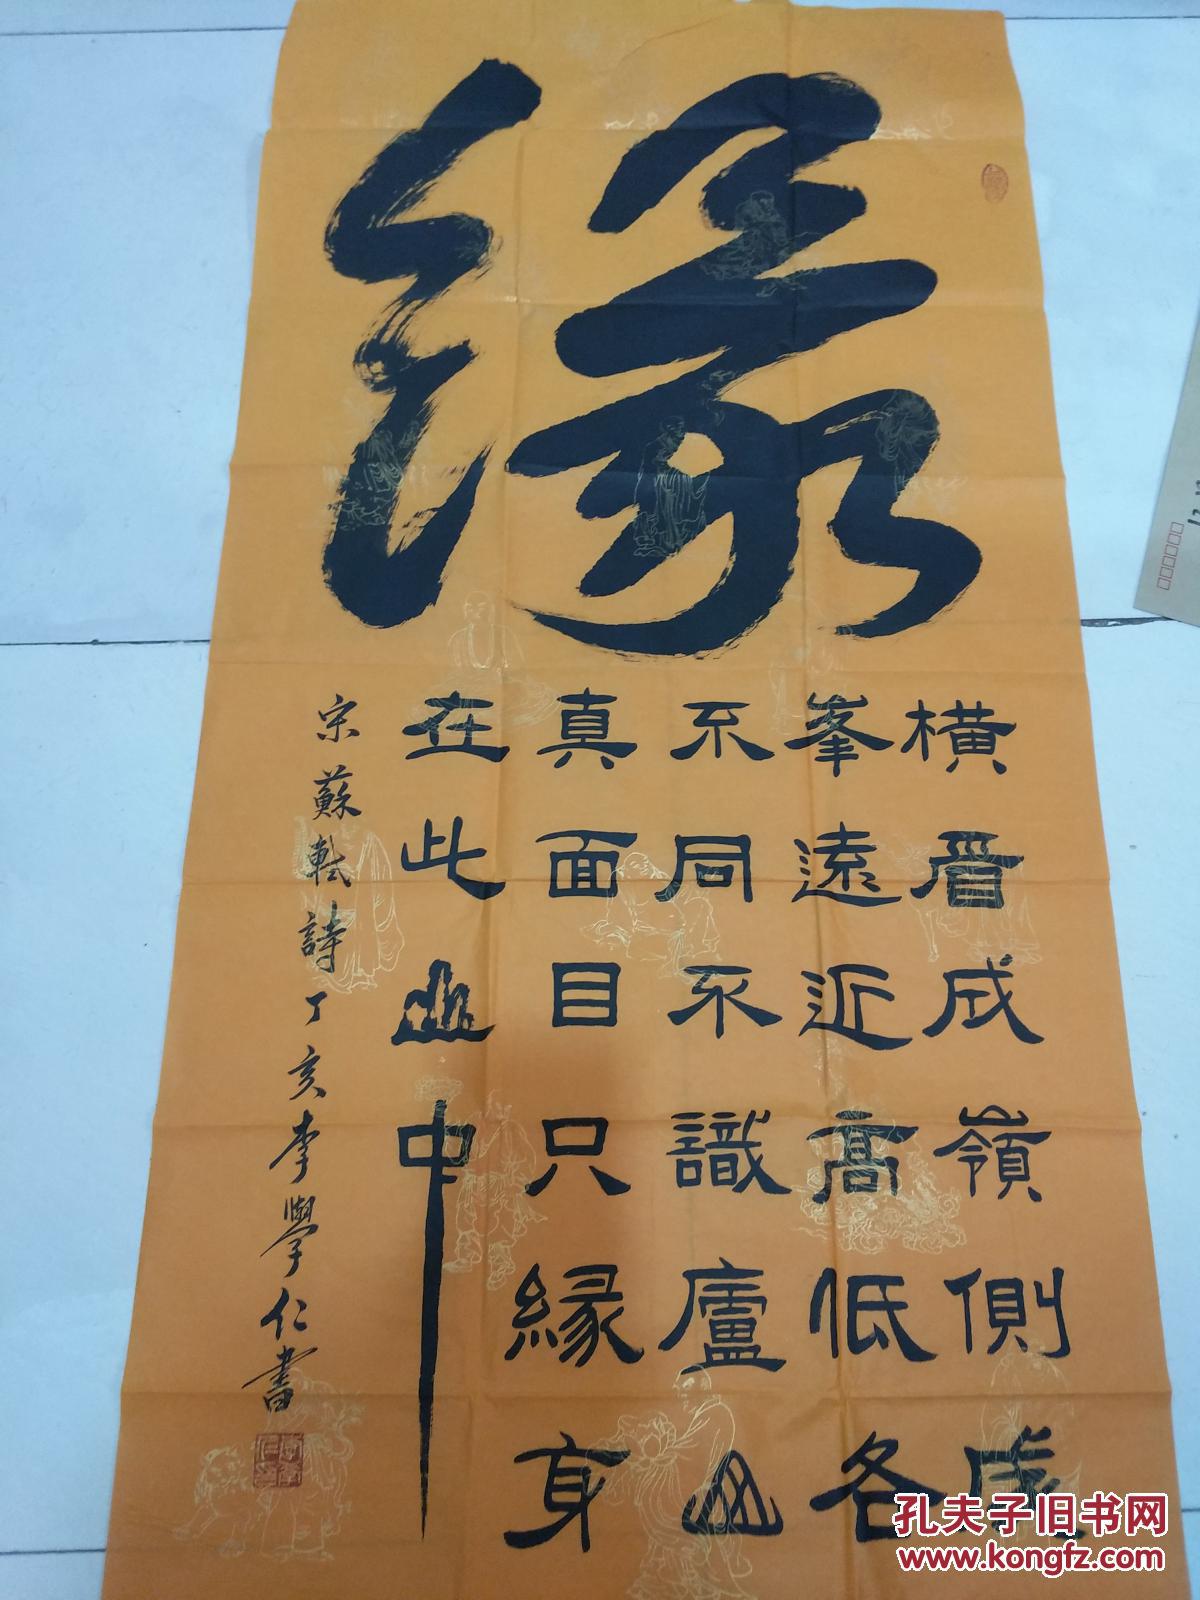 緣
横看成嶺側成
峯遠近高低各
不同不識廬山
真面目只縁身
在此山中
宋蘇軾詩丁亥李學仁書
孔夫子旧书网
www.kongfz.com